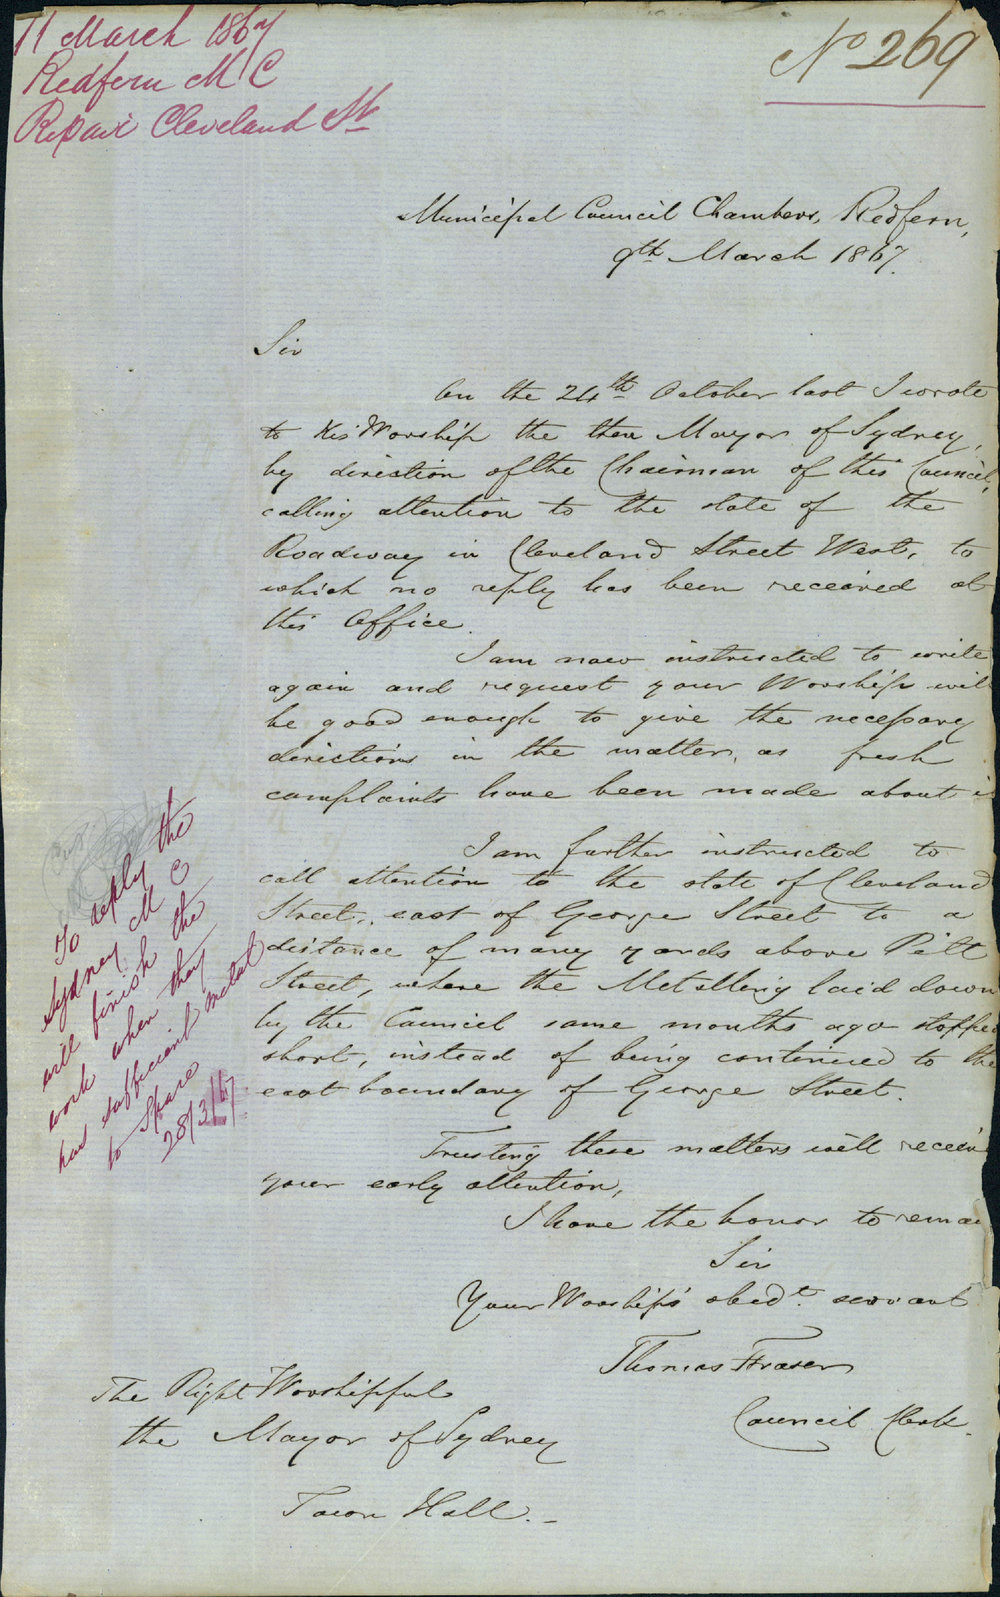 11 March 1867
Redfern M C
Repair Cleveland St
No 269
Municipal Council Chambers, Redfern,
9th March 1867.
Sir
On the 24th October last I wrote
to His Worship the then Mayor of Sydney,
by direction of the Chairman of this Council,
calling attention to the state of the
Roadway in Cleveland Street West, to
which no reply has been received at
this Office.
I am now instructed to write
again and request your Worship will
be good enough to give the necessary
directions in the matter, as fresh
complaints have been made about i
I am further instructed to
call attention to the state of Cleveland
Street, east of George Street to a
distance of many yards above Pitt
Street, where the Metalling laid down
by the Council some months ago stopped
short, instead of being continued to the
east boundary of George Street.
Trusting these matters will receiv
your early attention,
I have the honor to remai
Sir
Your Worship's obedt. servant
Thomas Fraser
Council Clerk.
The Right Worshipful
the Mayor of Sydney
Town Hall.
To reply the
Sydney M C
will finish the
work when they
has sufficient metal
to spare
28/3/67